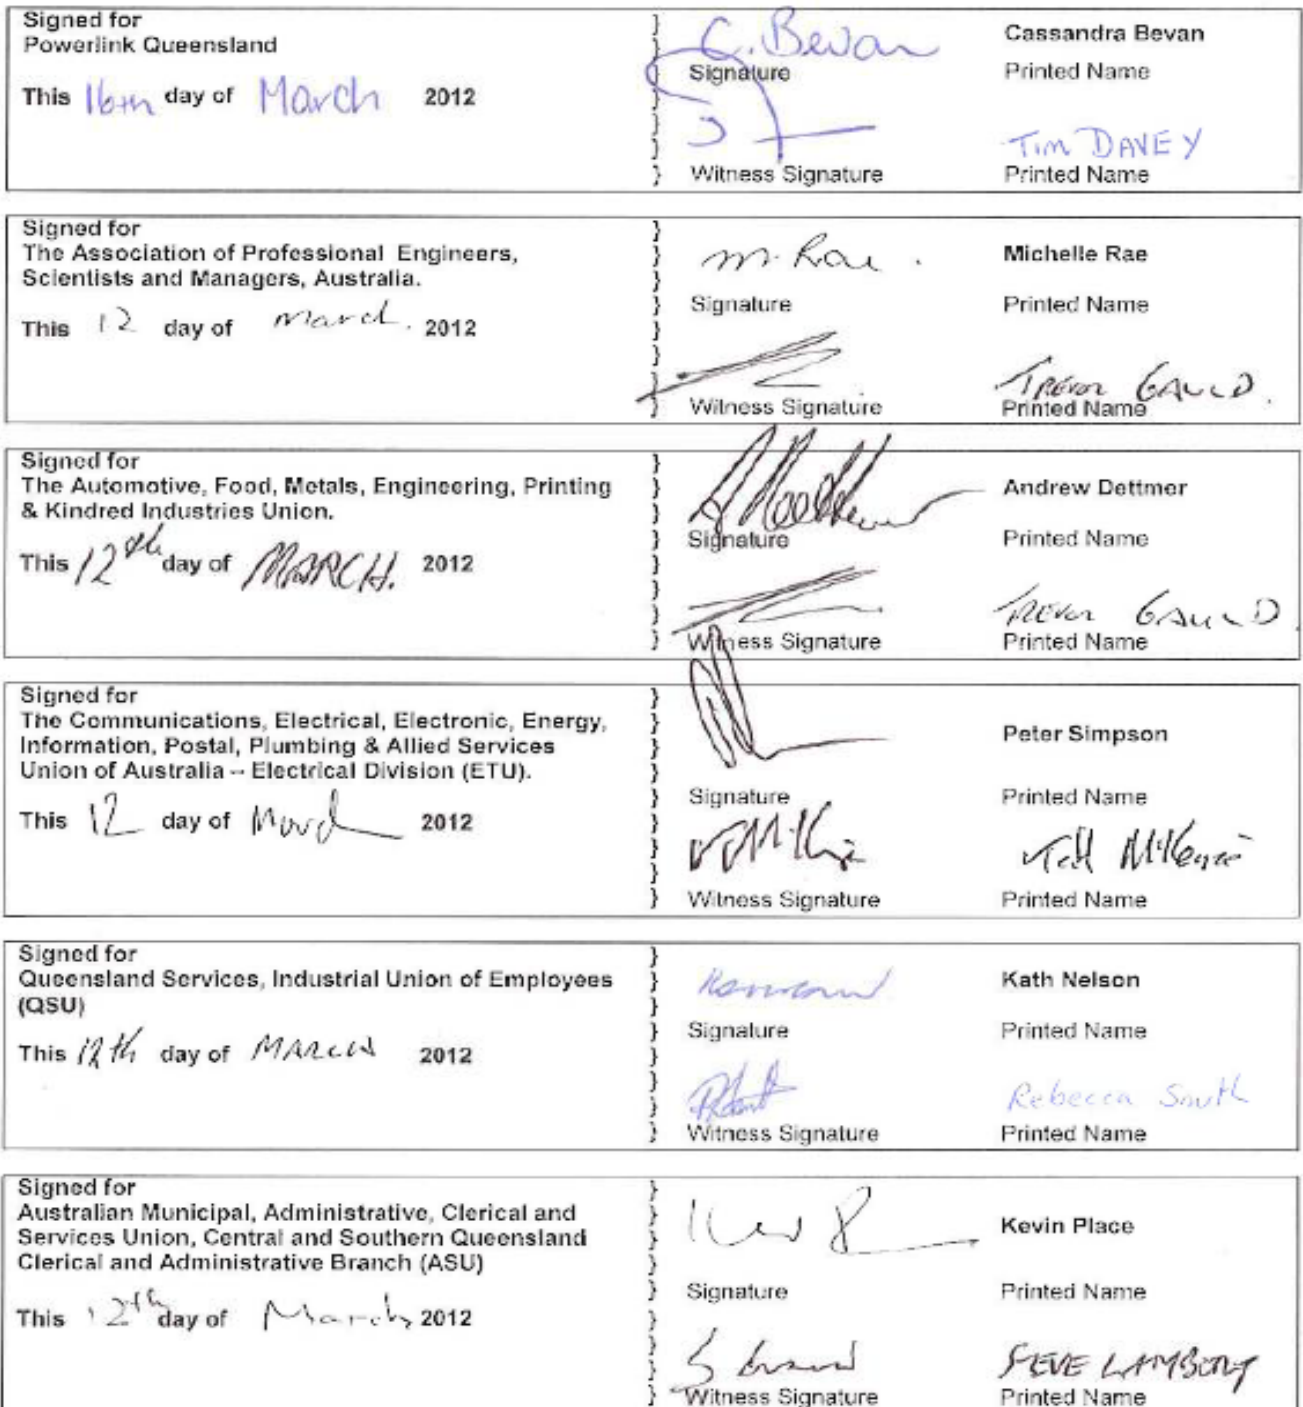 Signed for
Powerlink Queensland
This 16th day of March 2012
C. Bevan
Signature
Cassandra Bevan
Printed Name
Witness Signature
Tim DAVEY
Printed Name
Signed for
The Association of Professional Engineers,
Scientists and Managers, Australia.
This 12 day of March. 2012
M. Rae.
Signature
Michelle Rae
Printed Name
Witness Signature
TREVOR GAULD.
Printed Name
Signed for
The Automotive, Food, Metals, Engineering, Printing
& Kindred Industries Union.
This 12th day of MARCH. 2012
Signature
Andrew Dettmer
Printed Name
Witness Signature
TREVOR GAULD.
Printed Name
Signed for
The Communications, Electrical, Electronic, Energy,
Information, Postal, Plumbing & Allied Services
Union of Australia – Electrical Division (ETU).
This 12 day of March 2012
Signature
Peter Simpson
Printed Name
Witness Signature
McKenzie
Printed Name
Signed for
Queensland Services, Industrial Union of Employees
(QSU)
This 12th day of MARCH 2012
Signature
Kath Nelson
Printed Name
Witness Signature
Rebecca
Printed Name
Signed for
Australian Municipal, Administrative, Clerical and
Services Union, Central and Southern Queensland
Clerical and Administrative Branch (ASU)
This 12th day of March 2012
Signature
Kevin Place
Printed Name
Witness Signature
STEVE LAMBERT
Printed Name